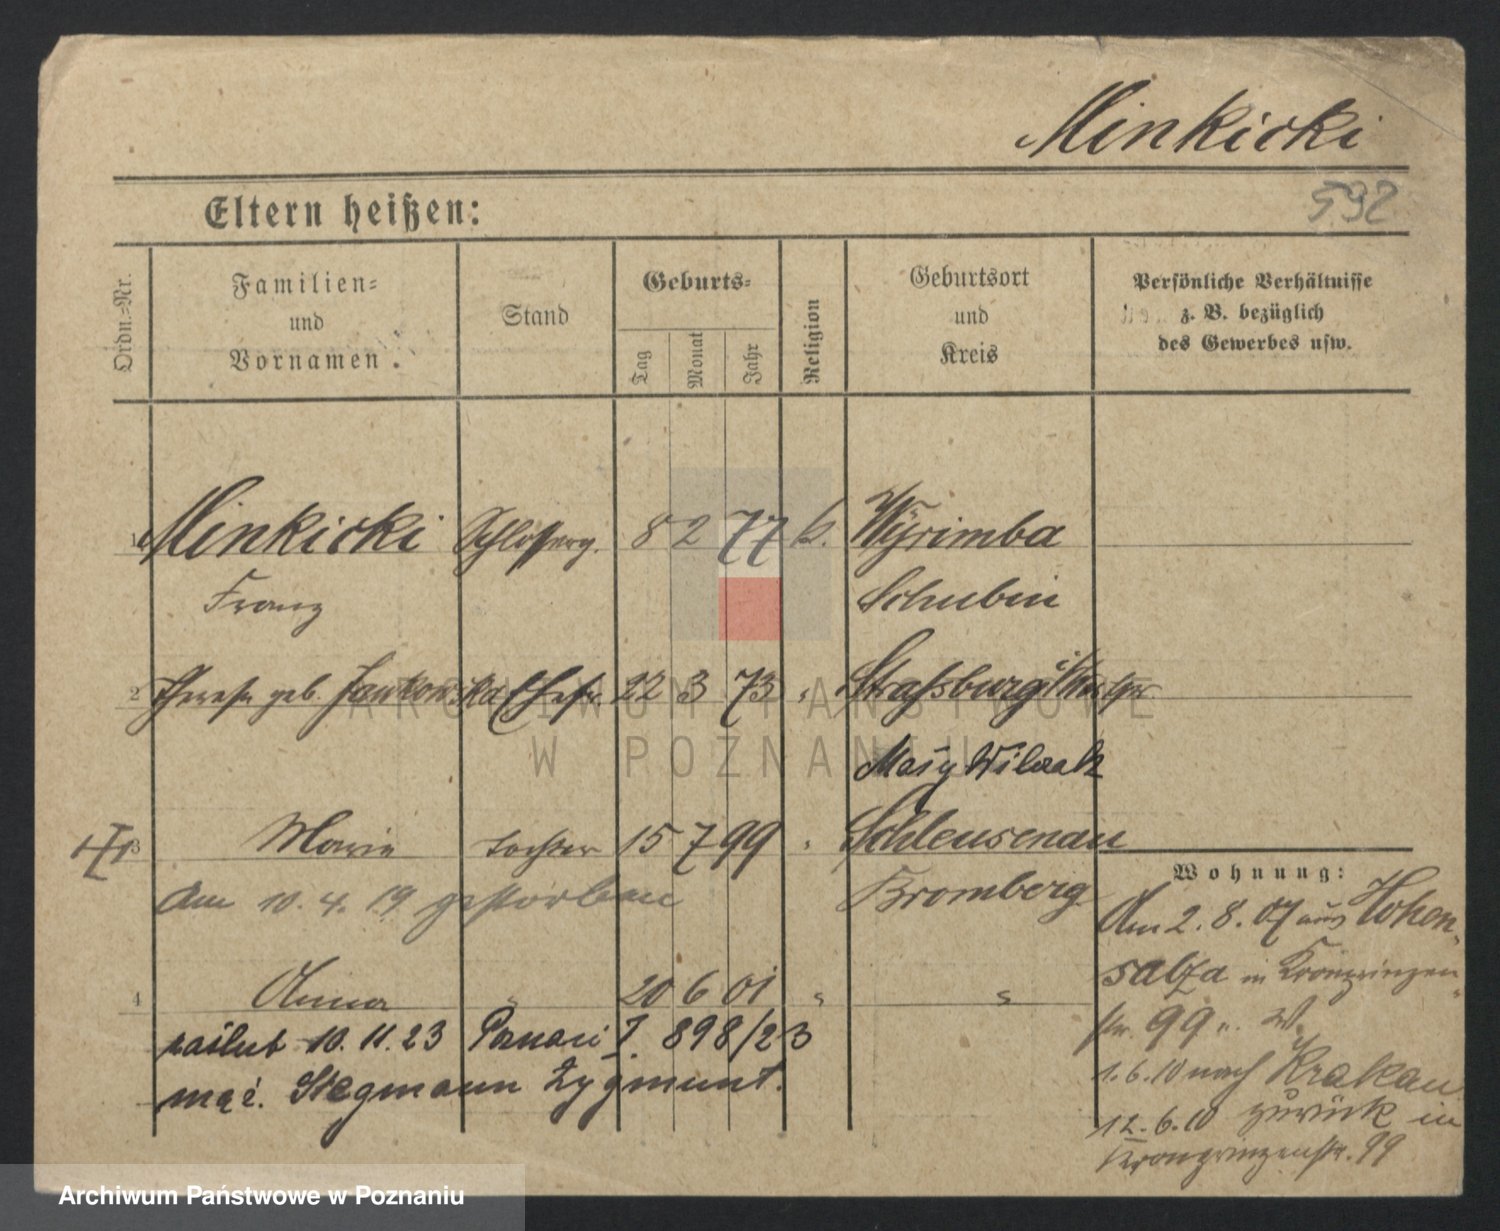 Minkicki
592
Eltern heißen:
Ordn.-Nr.
Familien-
und
Vornamen.
Stand
Geburts-
Tag
Monat
Jahr
Religion
Geburtsort
und
Kreis
Persönliche Verhältnisse
z. B. bezüglich
des Gewerbes usw.
1 Minkicki Schlosserg. 8 2 77 k. Wyrimba
Franz Schubin
2 Therese geb. Jankowska Ehefr. 22 3 73 " Straßburg i/Westpr
Marie Tochter 15 7 99 " Schleusenau
3
am 10. 4. 19 gestorben Bromberg
4 Anna " 20 6 01 " "
zaślub 10. 11. 23 Poznań I. 898/23
mąż. Stegmann Zygmunt.
Wohnung:
Am 2. 8. 07 aus Hohen-
salza in Kronprinzen-
str. 99 II. W.
1. 6. 10 nach Krakau
12. 6. 10 zurück in
Kronprinzenstr. 99
ARCHIWUM PAŃSTWOWE
W POZNANIU
Archiwum Państwowe w Poznaniu